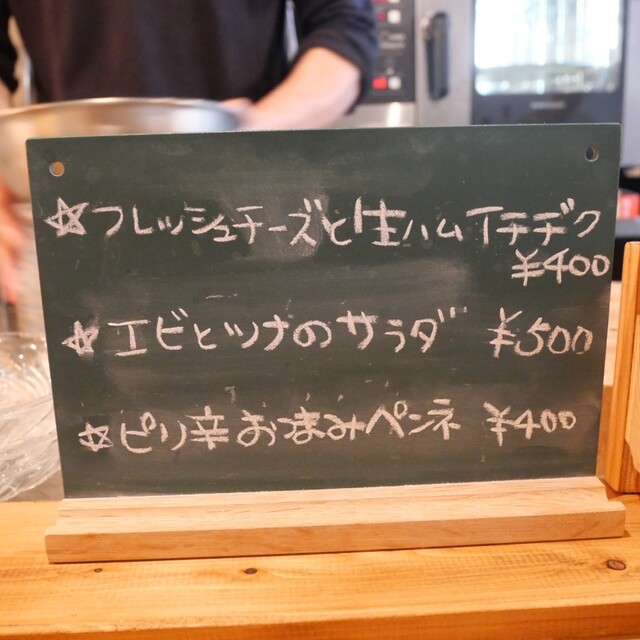 ☆フレッシュチーズと生ハムイチヂク
¥400
☆エビとツナのサラダ ¥500
☆ピリ辛おつまみペンネ ¥400